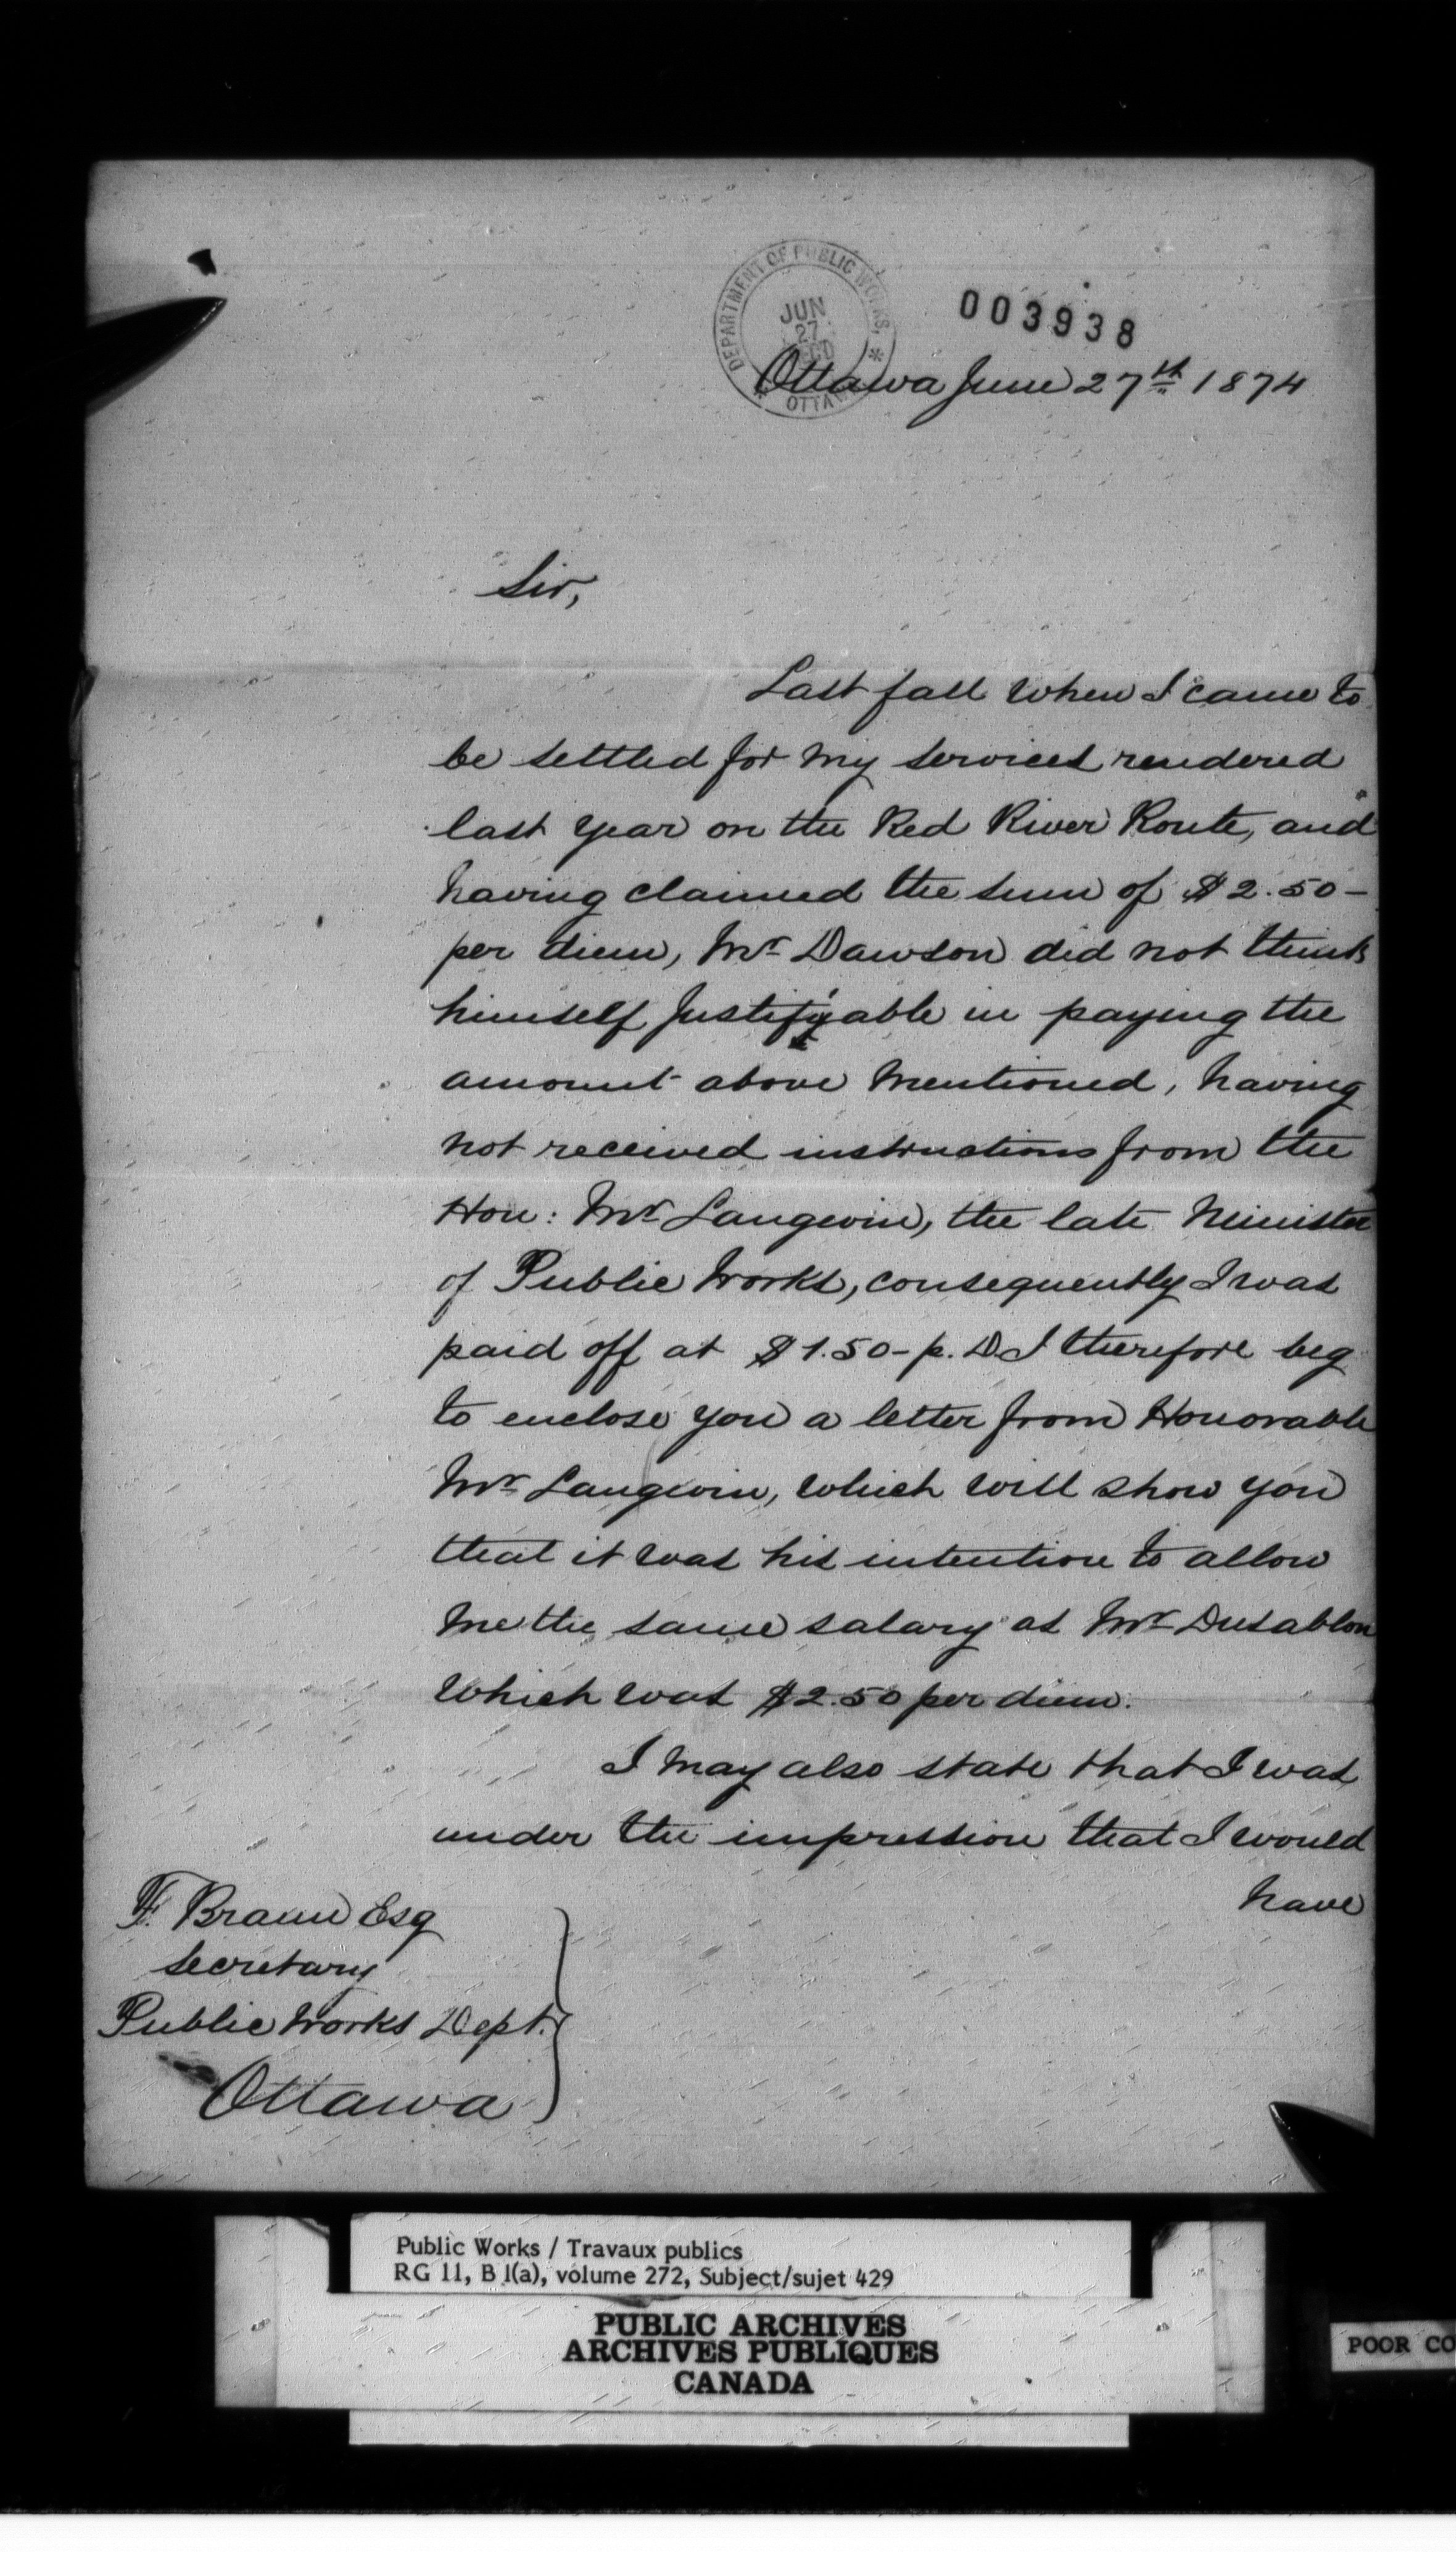 DEPARTMENT OF PUBLIC WORKS,
JUN
27
OTTAWA
003938
Ottawa June 27th 1874
Sir,
Last fall when I came to
be settled for my services rendered
last year on the Red River Route, and
having claimed the sum of $2.50-
per diem, Mr Dawson did not think
himself Justifyable in paying the
amount above mentioned, having
not received instructions from the
Hon: Mr Langevin, the late Minister
of Public Works, consequently I was
paid off at $1.50-p. D. I therefore beg
to enclose you a letter from Honorable
Mr Langevin, which will show you
that it was his intention to allow
me the same salary as Mr Dusablon
which was $2.50 per diem.
I may also state that I was
under the impression that I would
have
F. Braun Esq
Secretary
Public Works Dept.
Ottawa
Public Works / Travaux publics
RG 11, B 1(a), volume 272, Subject/sujet 429
PUBLIC ARCHIVES
ARCHIVES PUBLIQUES
CANADA
POOR CO